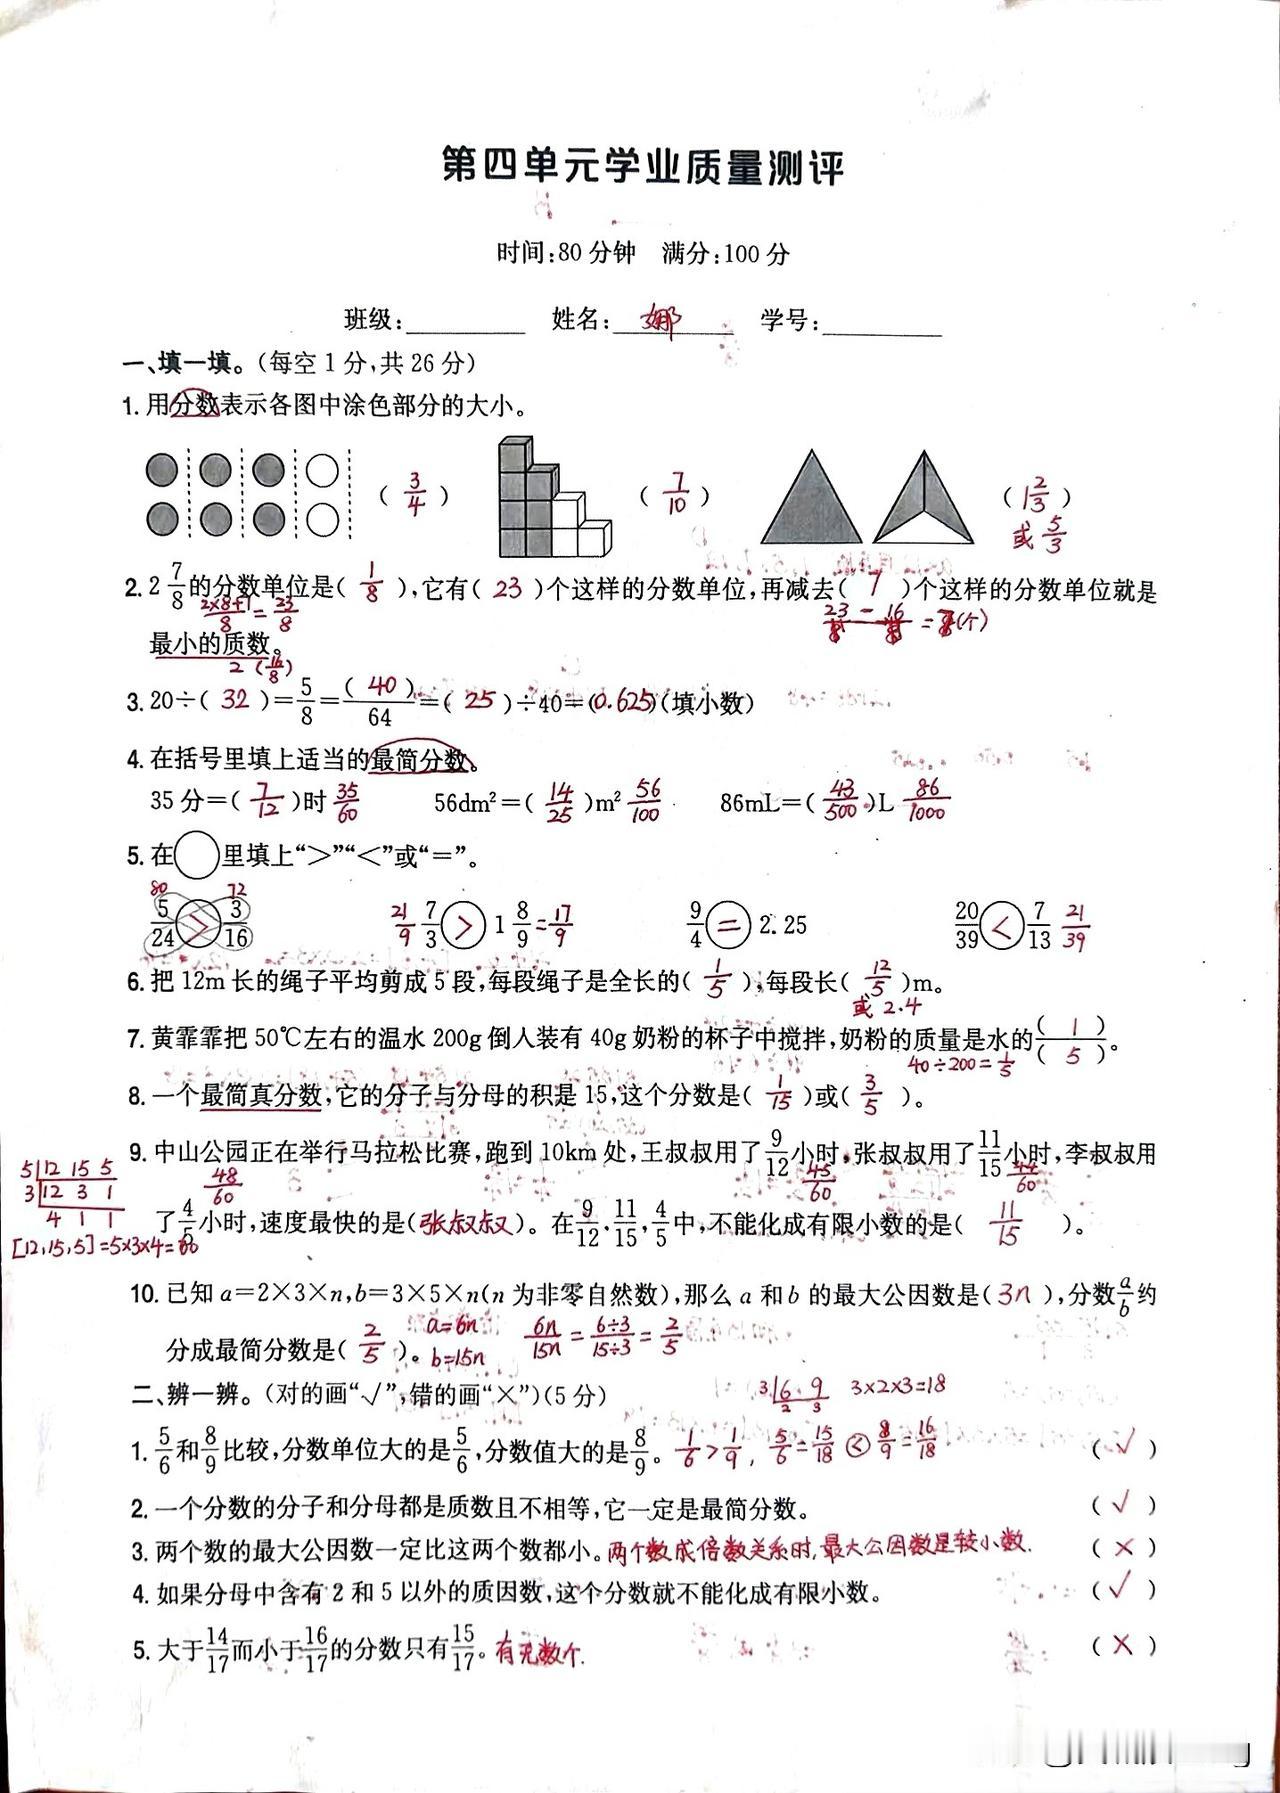 第四单元学业质量测评
时间:80分钟 满分:100分
班级:________ 姓名: 娜 学号:________
一、填一填。(每空1分,共26分)
1. 用分数表示各图中涂色部分的大小。
( 3/4 ) ( 7/10 ) ( 1 2/3 )
或 5/3
2. 2 7/8 的分数单位是( 1/8 ),它有( 23 )个这样的分数单位,再减去( 7 )个这样的分数单位就是
最小的质数。
2 (16/8)
3. 20÷( 32 )=5/8=( 40 )/64=( 25 )÷40=(0.625)(填小数)
4. 在括号里填上适当的最简分数。
35分=( 7/12 )时 35/60 56dm²=( 14/25 )m² 56/100 86mL=( 43/500 )L 86/1000
5. 在○里填上“>”“<”或“=”。
80 72
5/24 > 3/16 21/9 7/3 > 1 8/9 =17/9 9/4 = 2.25 20/39 < 7/13 21/39
6. 把12m长的绳子平均剪成5段,每段绳子是全长的( 1/5 ),每段长( 12/5 )m。
或 2.4
7. 黄霏霏把50℃左右的温水200g倒人装有40g奶粉的杯子中搅拌,奶粉的质量是水的( 1 )/( 5 )。
40÷200=1/5
8. 一个最简真分数,它的分子与分母的积是15,这个分数是( 1/15 )或( 3/5 )。
9. 中山公园正在举行马拉松比赛,跑到10km处,王叔叔用了9/12小时,张叔叔用了11/15小时,李叔叔用
48/60 45/60 44/60
了4/5小时,速度最快的是(张叔叔)。在9/12,11/15,4/5中,不能化成有限小数的是( 11/15 )。
5 12 15 5
3 12 3 1
4 1 1
[12,15,5]=5×3×4=60
10. 已知a=2×3×n,b=3×5×n(n为非零自然数),那么a和b的最大公因数是(3n),分数a/b约
分成最简分数是( 2/5 )。 a=6n b=15n 6n/15n=6÷3/15÷3=2/5
二、辨一辨。(对的画“√”,错的画“×”)(5分) 3 6 9 2 3 3×2×3=18
1. 5/6和8/9比较,分数单位大的是5/6,分数值大的是8/9。 1/6>1/9, 5/6=15/18 < 8/9=16/18 ( √ )
2. 一个分数的分子和分母都是质数且不相等,它一定是最简分数。 ( √ )
3. 两个数的最大公因数一定比这两个数都小。两个数成倍数关系时,最大公因数是较小数. ( × )
4. 如果分母中含有2和5以外的质因数,这个分数就不能化成有限小数。 ( √ )
5. 大于14/17而小于16/17的分数只有15/17。有无数个. ( × )